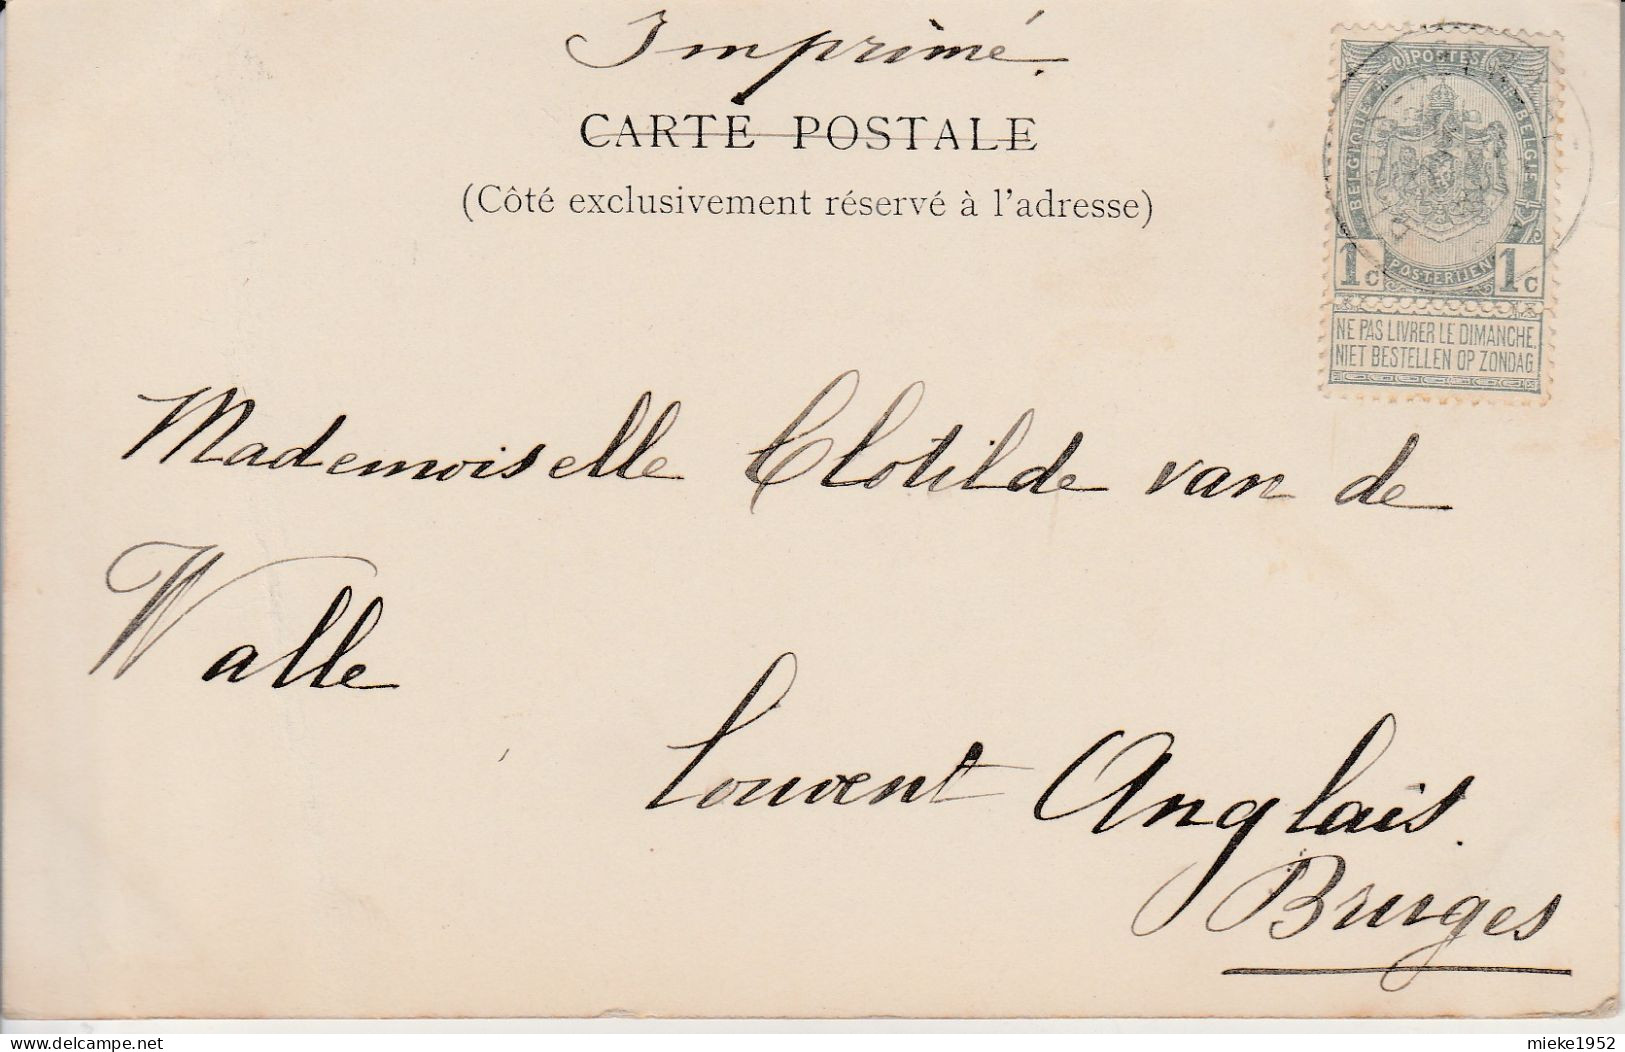 Imprimé.
CARTE POSTALE
(Côté exclusivement réservé à l'adresse)
POSTES
BELGIQUE
BELGIE
POSTERIJEN
1c 1c
NE PAS LIVRER LE DIMANCHE.
NIET BESTELLEN OP ZONDAG
Mademoiselle Clotilde van de
Walle
Couvent Anglais.
Bruges
delcampe.net
mieke1952